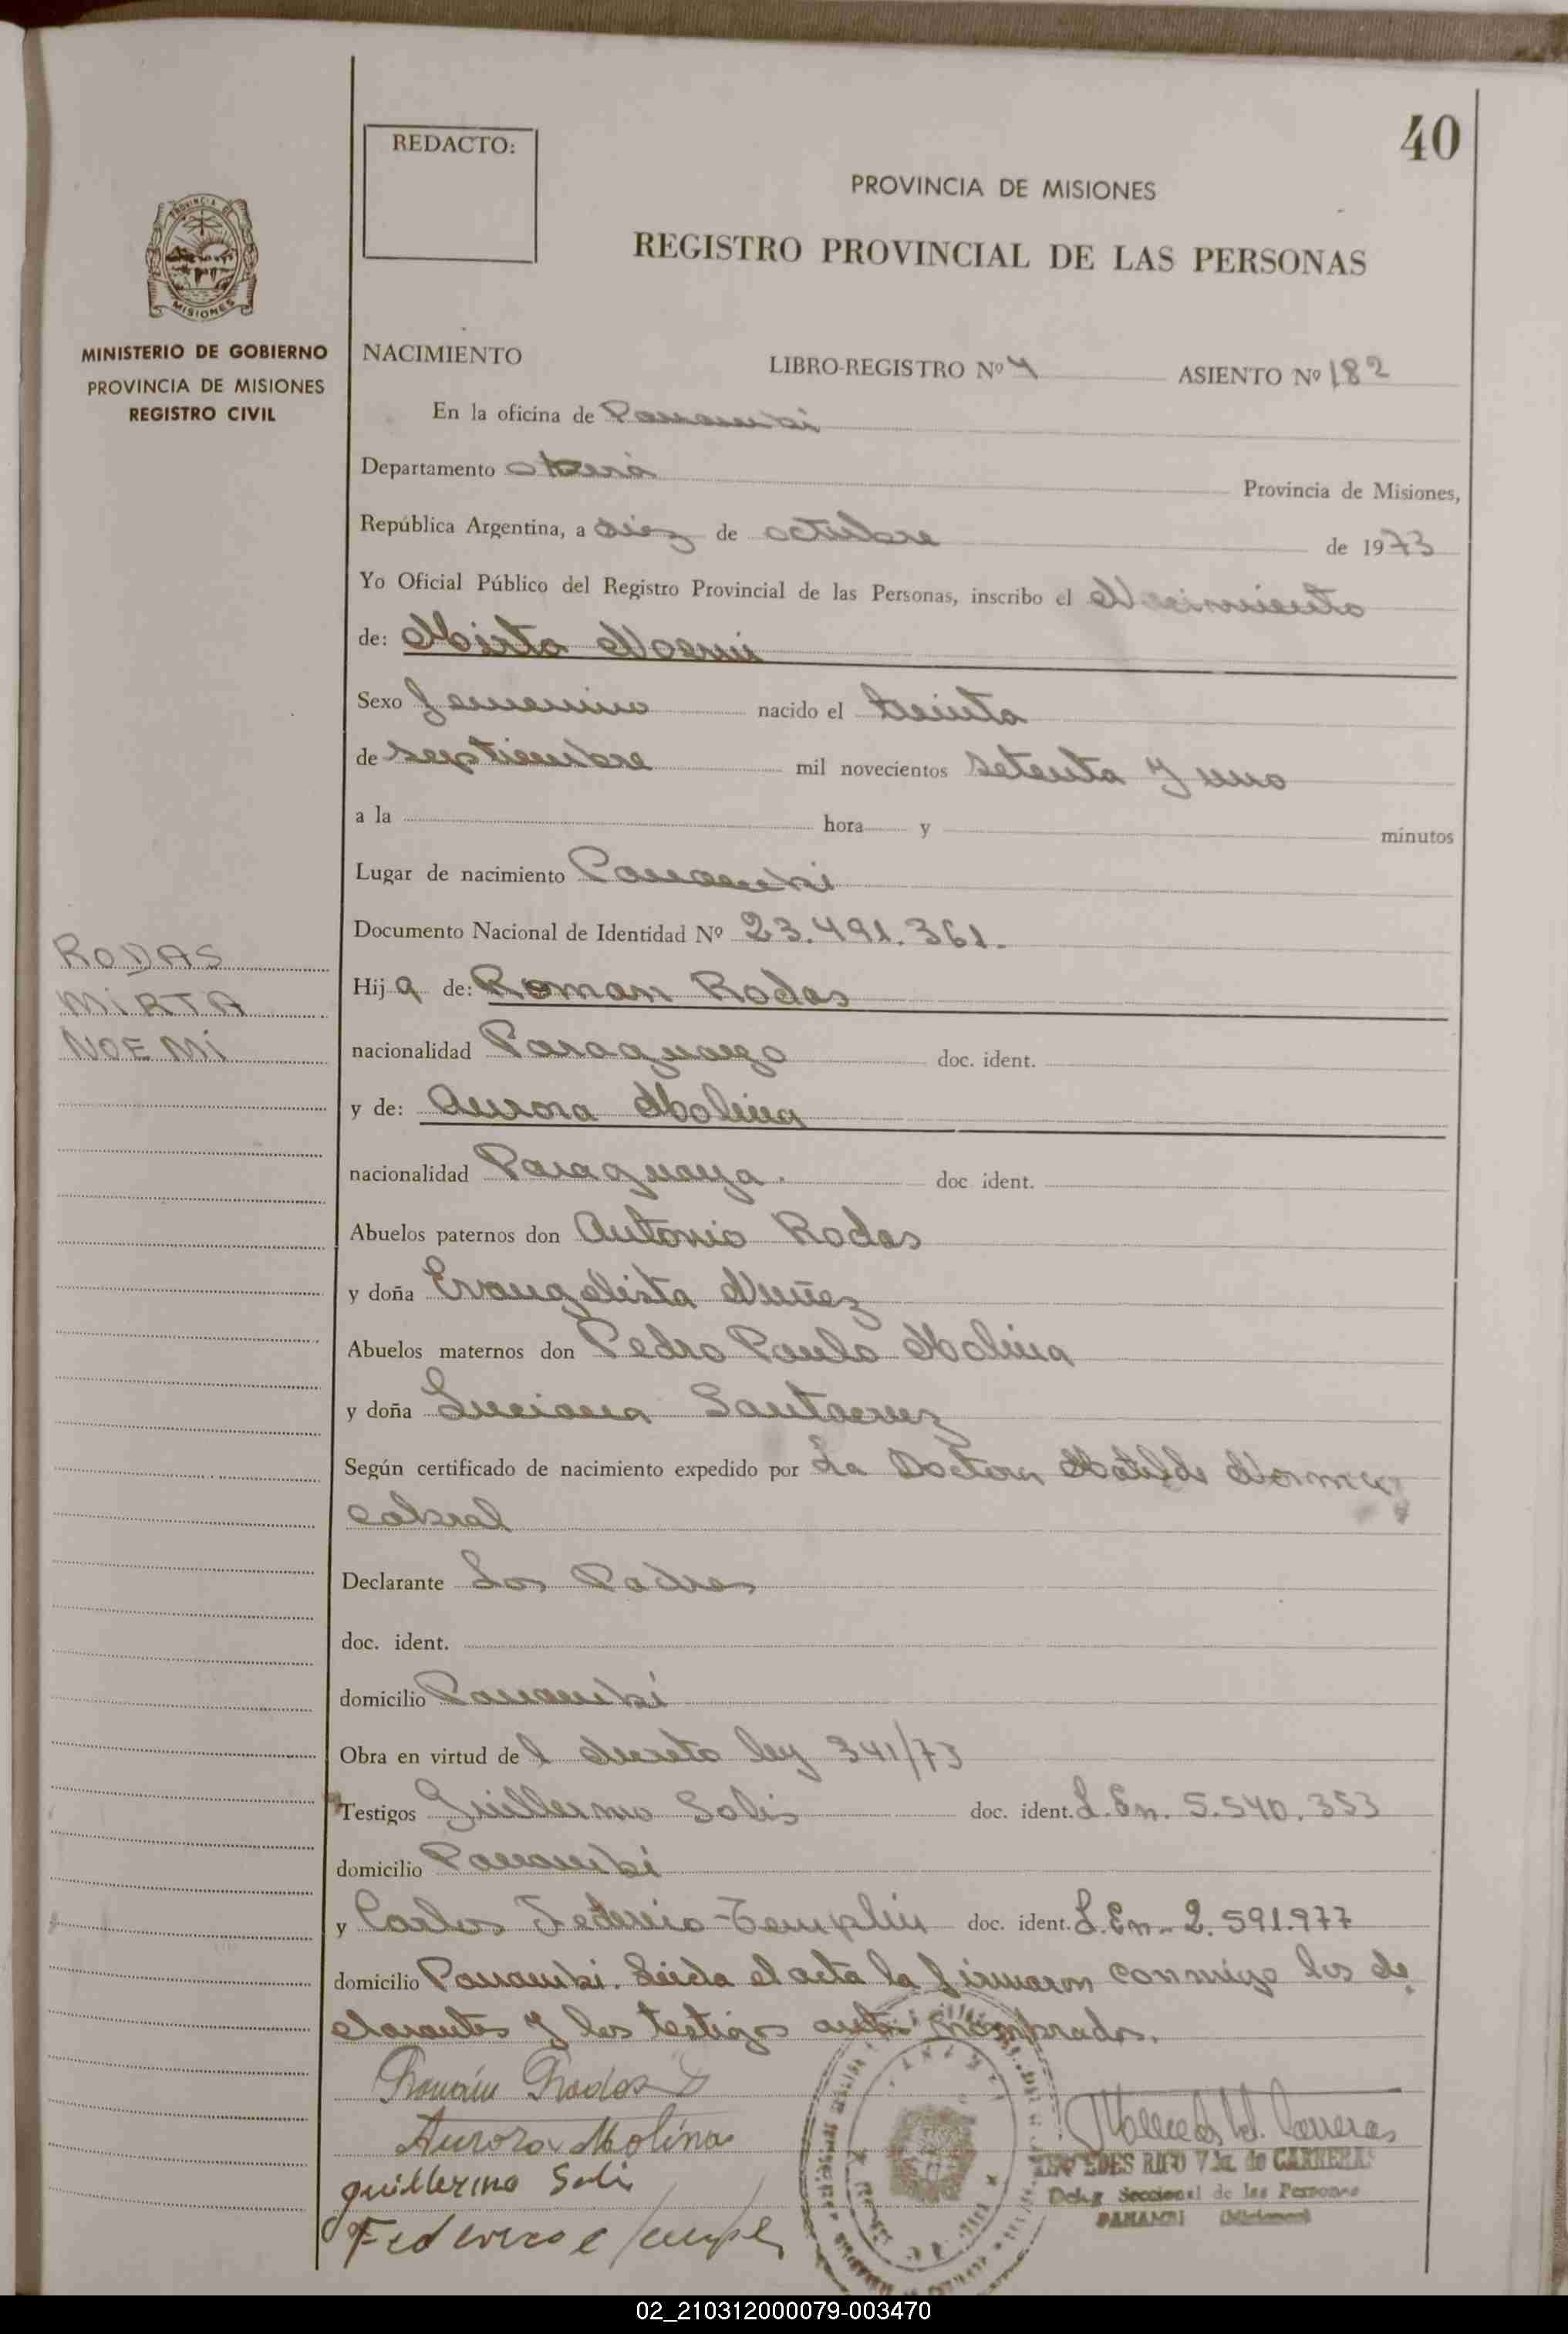 40
REDACTO:
PROVINCIA DE MISIONES
REGISTRO PROVINCIAL DE LAS PERSONAS
PROVINCIA DE
MISIONES
MINISTERIO DE GOBIERNO
PROVINCIA DE MISIONES
REGISTRO CIVIL
NACIMIENTO LIBRO-REGISTRO Nº 4 ASIENTO Nº 182
En la oficina de Panambi
Departamento oberá Provincia de Misiones,
República Argentina, a diez de octubre de 1973
Yo Oficial Público del Registro Provincial de las Personas, inscribo el Nacimiento
de: Mirta Noemi
Sexo femenino nacido el treinta
de septiembre mil novecientos setenta y uno
a la hora y minutos
Lugar de nacimiento Panambi
Documento Nacional de Identidad Nº 23.491.361.
RODAS
MIRTA
NOEMI
Hija de: Roman Rodas
nacionalidad Paraguayo doc. ident.
y de: Aurora Molina
nacionalidad Paraguaya. doc ident.
Abuelos paternos don Antonio Rodas
y doña Evangelista Nuñez
Abuelos maternos don Pedro Paulo Molina
y doña Luciana Santacruz
Según certificado de nacimiento expedido por La Doctora Matilde Norma
Cabral
Declarante Los Padres
doc. ident.
domicilio Panambi
Obra en virtud del decreto ley 341/73
Testigos Guillermo Solis doc. ident. L.En. 5.540.353
domicilio Panambi
y Carlos Federico Templin doc. ident. L.En. 2.591.977
domicilio Panambi. Leida el acta la firmaron conmigo los de
clarantes y los testigos antes nombrados.
Román Rodas
Aurora Molina
guillermo Solis
Federico
MERCEDES RIFO Vda. de CARRERAS
Deleg. Seccional de las Personas
PANAMBI (Misiones)
02_210312000079-003470